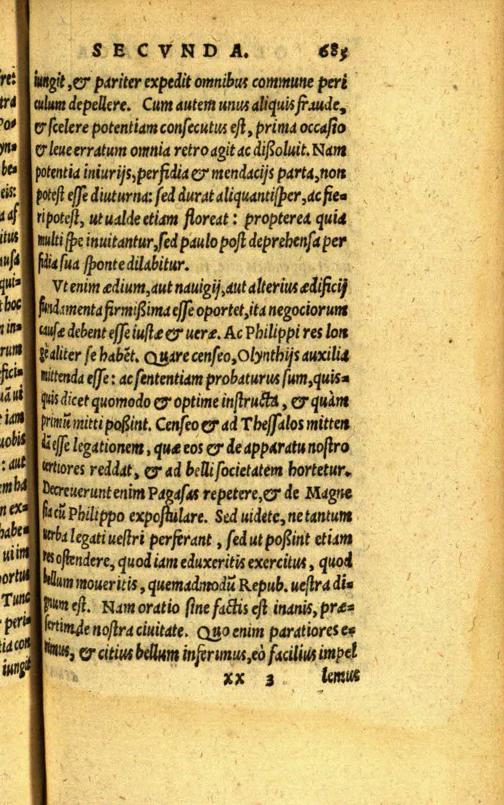 SECVNDA. 685
iungit, & pariter expedit omnibus commune peri
culum depellere. Cum autem unus aliquis fraude,
& scelere potentiam consecutus est, prima occasio
& leue erratum omnia retro agit ac dißoluit. Nam
potentia iniurijs, perfidia & mendacijs parta, non
potest esse diuturna: sed durat aliquantisper, ac fie-
ri potest, ut ualde etiam floreat: propterea quia
multi spe inuitantur, sed paulo post deprehensa per
fidia sua sponte dilabitur.
Vt enim ædium, aut nauigij, aut alterius ædificij
fundamenta firmißima esse oportet, ita negociorum
causæ debent esse iustæ & ueræ. Ac Philippi res lon
gè aliter se habẽt. Quare censeo, Olynthijs auxilia
mittenda esse: ac sententiam probaturus sum, quis-
quis dicet quomodo & optime instructa, & quàm
primũ mitti poßint. Censeo & ad Thessalos mitten
dã esse legationem, quæ eos & de apparatu nostro
certiores reddat, & ad belli societatem hortetur.
Decreuerunt enim Pagasas repetere, & de Magne
sia cũ Philippo expostulare. Sed uidete, ne tantum
uerba legati uestri perferant, sed ut poßint etiam
res ostendere, quod iam eduxeritis exercitus, quod
bellum moueritis, quemadmodũ Repub. uestra di-
gnum est. Nam oratio sine factis est inanis, præ-
sertim de nostra ciuitate. Quo enim paratiores e-
rimus, & citius bellum inferimus, eò facilius impel
xx 3 lemus